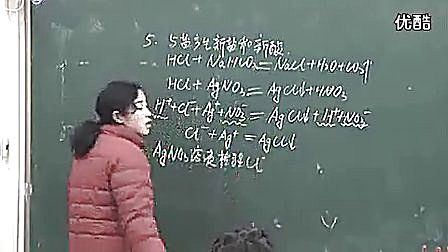 优酷
5. 与盐产生新盐和新酸.
HCl+NaHCO₃=NaCl+H₂O+CO₂↑
HCl+AgNO₃=AgCl↓+HNO₃
H⁺+Cl⁻+Ag⁺+NO₃⁻=AgCl↓+H⁺+NO₃⁻
Cl⁻+Ag⁺=AgCl↓
AgNO₃溶液检验Cl⁻